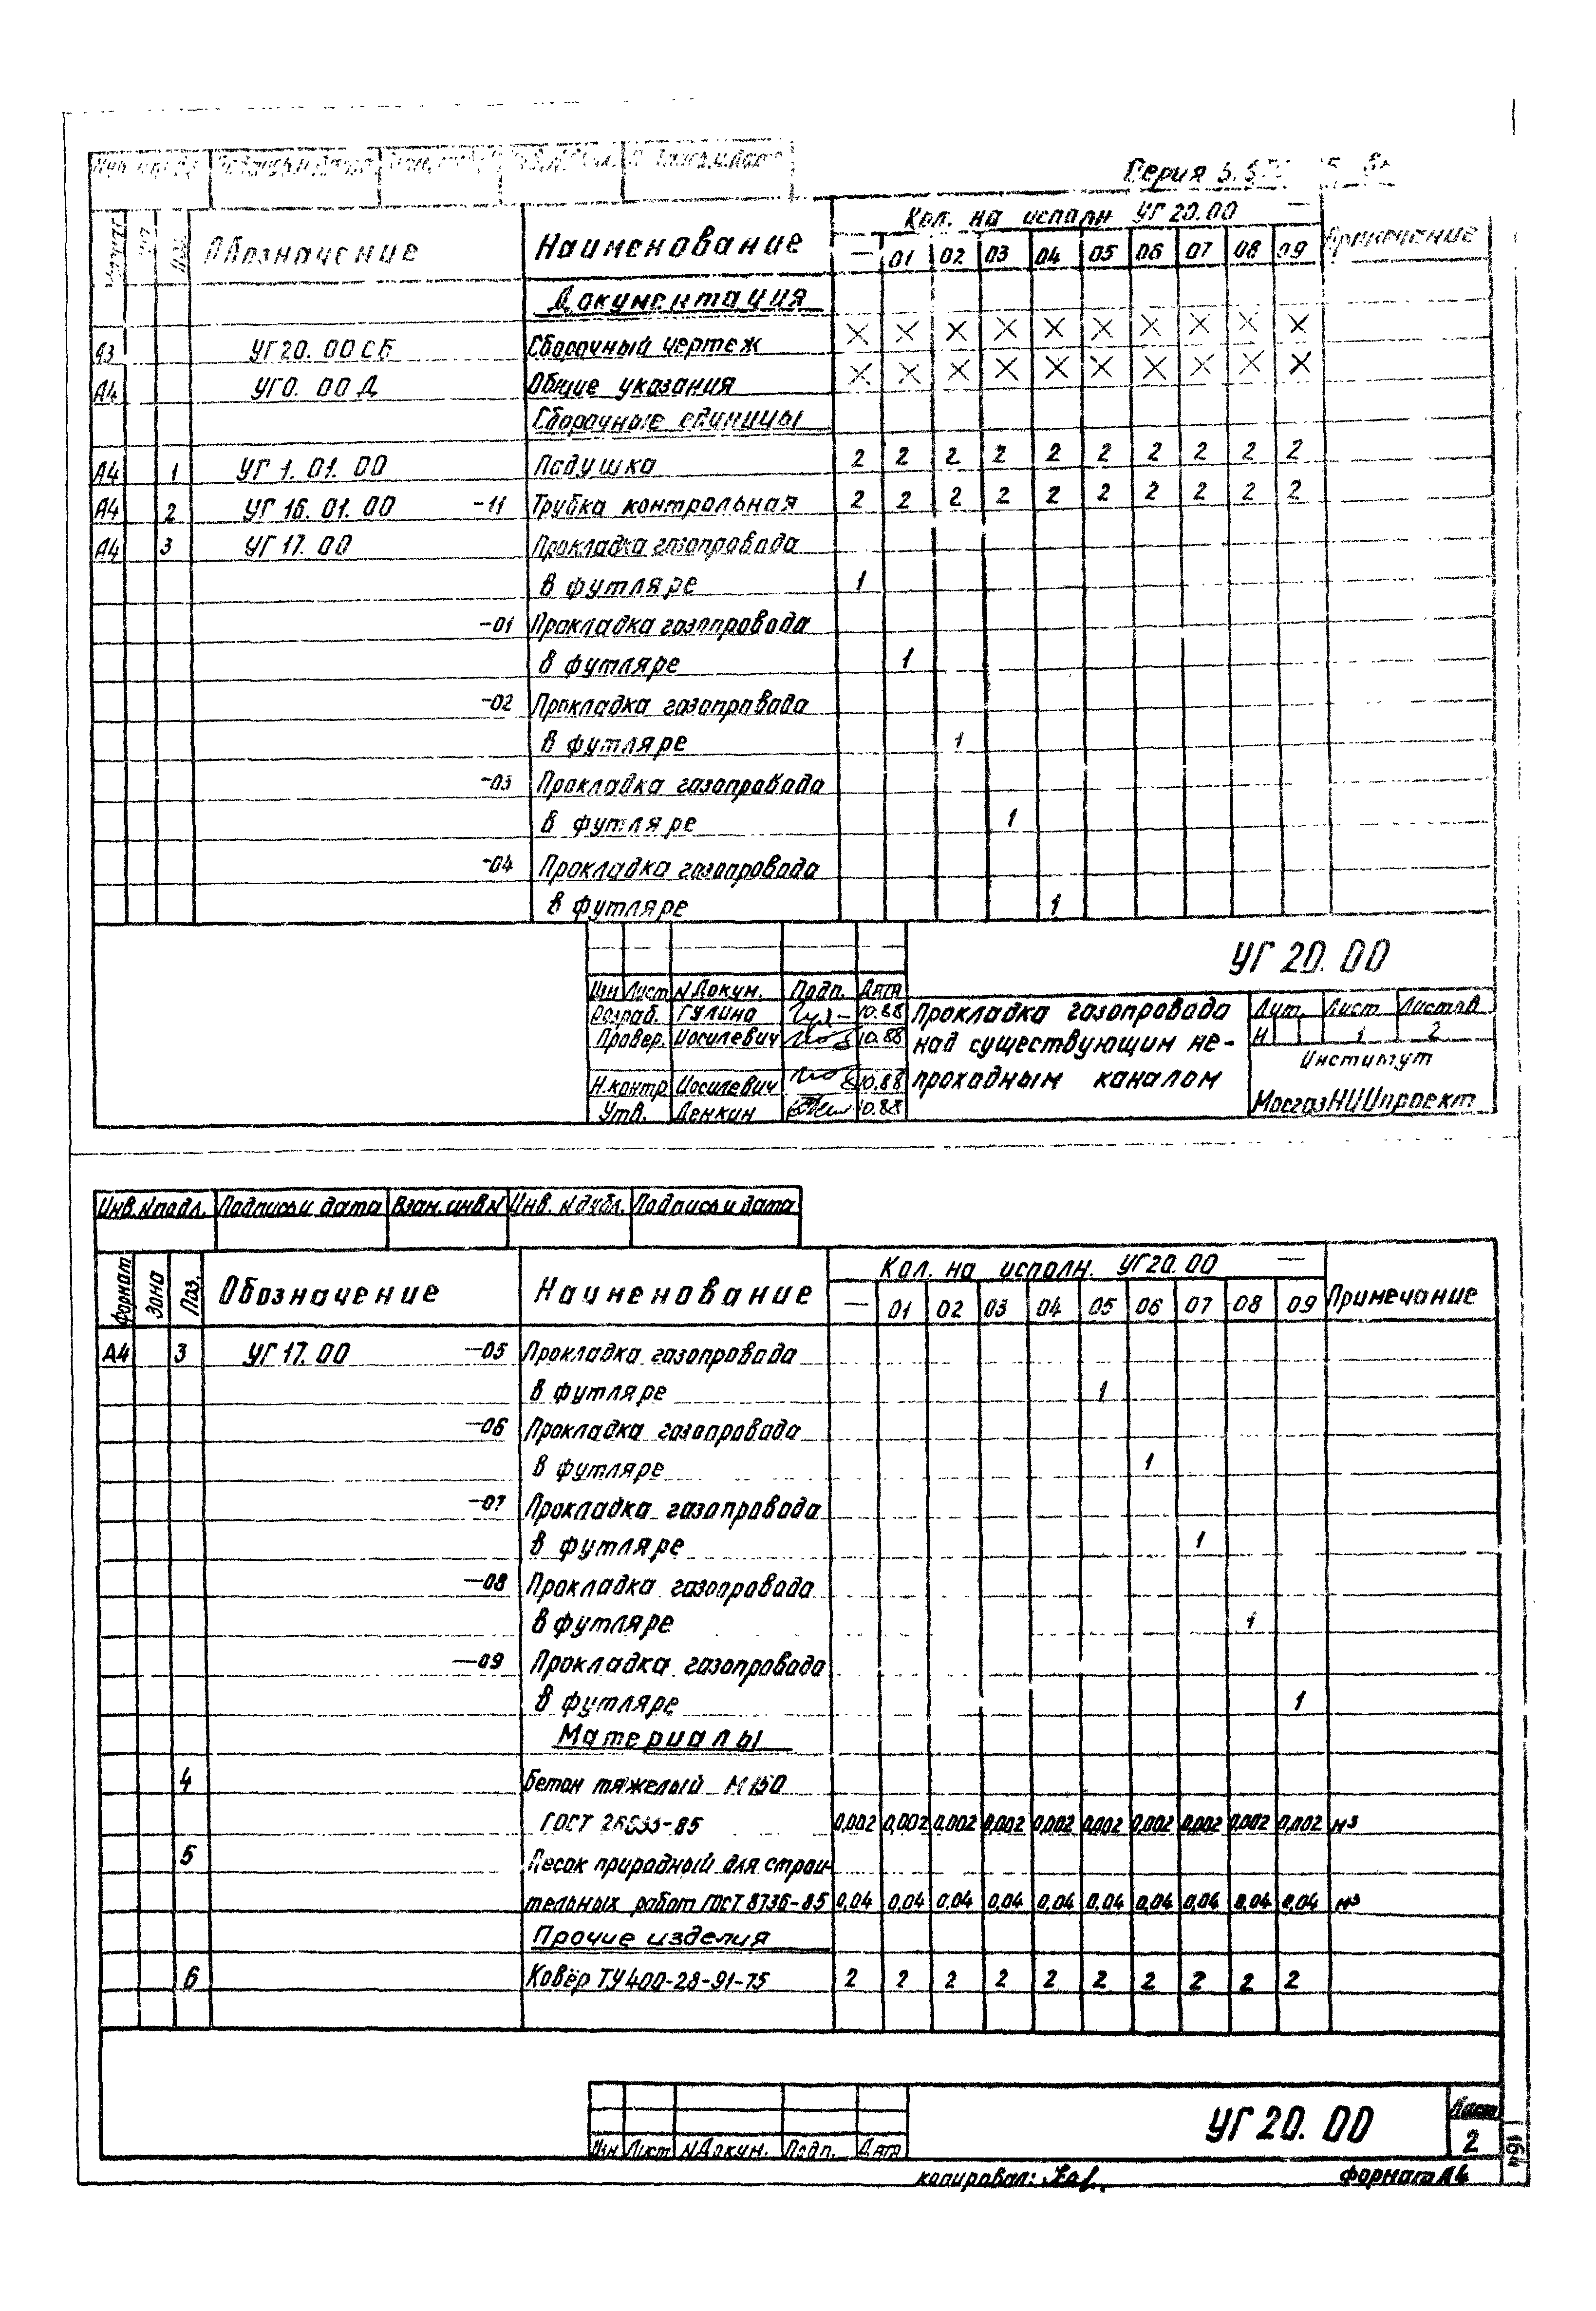 Серия
Обозначение Наименование Кол. на исполн УГ 20.00 — Примечание
— 01 02 03 04 05 06 07 08 09
Документация
А3 УГ20. 00 СБ Сборочный чертеж × × × × × × × × × ×
А4 УГ0. 00 Д Общие указания × × × × × × × × × ×
Сборочные единицы
А4 1 УГ 1. 01. 00 Подушка 2 2 2 2 2 2 2 2 2 2
А4 2 УГ 16. 01. 00 -11 Трубка контрольная 2 2 2 2 2 2 2 2 2 2
А4 3 УГ 17. 00 Прокладка газопровода
в футляре 1
-01 Прокладка газопровода
в футляре 1
-02 Прокладка газопровода
в футляре 1
-03 Прокладка газопровода
в футляре 1
-04 Прокладка газопровода
в футляре 1
УГ 20. 00
Изм Лист № Докум. Подп. Дата
Разраб. Гулина 10.88
Провер. Иосилевич 10.88
Н.контр Иосилевич 10.88
Утв. Денкин 10.88
Прокладка газопровода
над существующим не-
проходным каналом
Лит. Лист Листов
И 1 2
Институт
МосгазНИИпроект
Инв. № подл. Подпись и дата Взам. инв № Инв. № дубл. Подпись и дата
Формат Зона Поз. Обозначение Наименование Кол. на исполн. УГ20. 00 — Примечание
— 01 02 03 04 05 06 07 08 09
А4 3 УГ 17. 00 -05 Прокладка газопровода
в футляре 1
-06 Прокладка газопровода
в футляре 1
-07 Прокладка газопровода
в футляре 1
-08 Прокладка газопровода
в футляре 1
-09 Прокладка газопровода
в футляре 1
Материалы
4 Бетон тяжелый М 150
ГОСТ 0,002 0,002 0,002 0,002 0,002 0,002 0,002 0,002 0,002 0,002 м³
5 Песок природный для строи-
тельных работ ГОСТ 8736-85 0,04 0,04 0,04 0,04 0,04 0,04 0,04 0,04 0,04 0,04 м³
Прочие изделия
6 Ковёр ТУ400-28-91-75 2 2 2 2 2 2 2 2 2 2
УГ 20. 00
Лист
2
Изм Лист № Докум. Подп. Дата
копировал:
формат А4